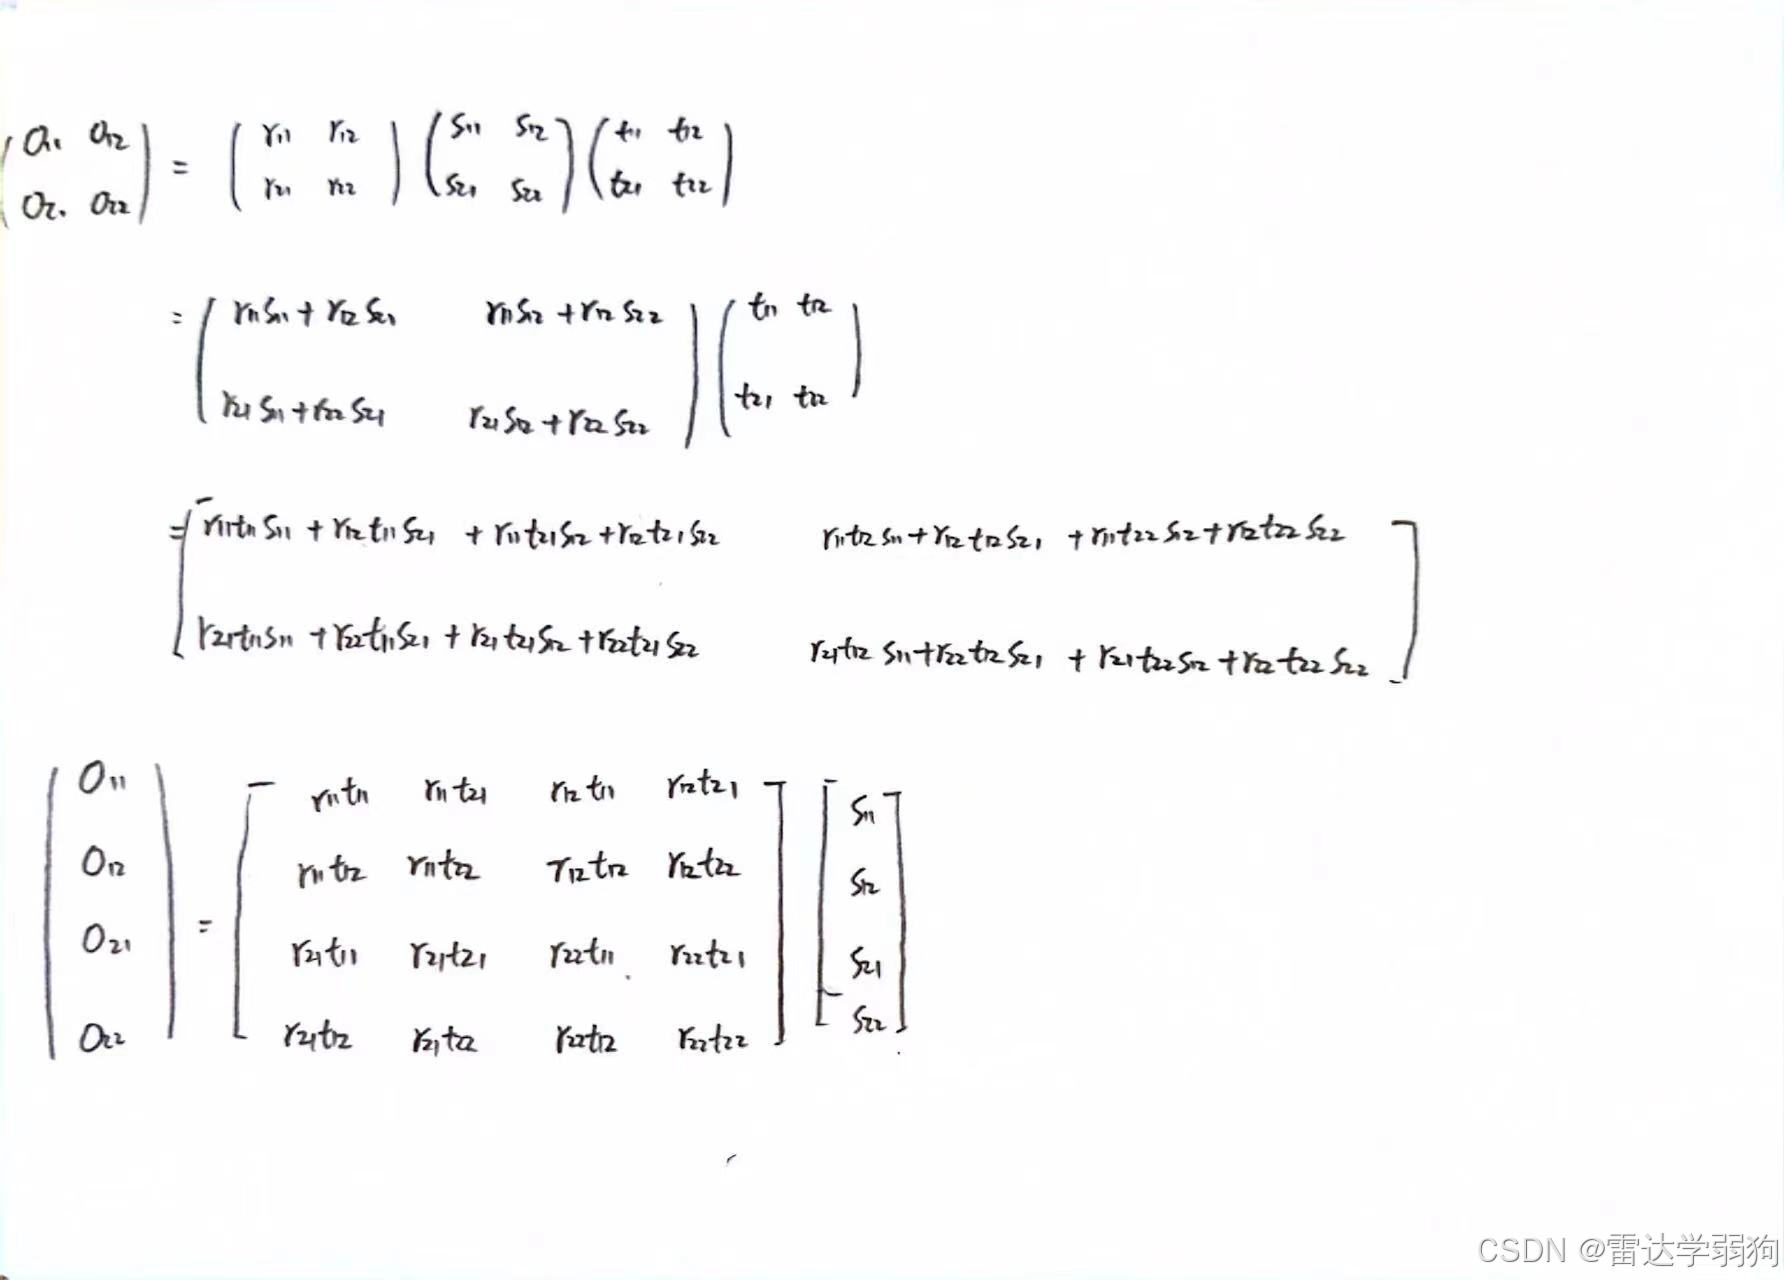 (O11 O12 O21 O22) = (r11 r12 r21 r22) (s11 s12 s21 s22) (t11 t12 t21 t22)
= (r11s11 + r12s21 r11s12 + r12s22 r21s11 + r22s21 r21s12 + r22s22) (t11 t12 t21 t22)
= [r11t11s11 + r12t11s21 + r11t21s12 + r12t21s22 r11t12s11 + r12t12s21 + r11t22s12 + r12t22s22
r21t11s11 + r22t11s21 + r21t21s12 + r22t21s22 r21t12s11 + r22t12s21 + r21t22s12 + r22t22s22]
O11 r11t11 r11t21 r12t11 r12t21 s11
O12 r11t12 r11t22 r12t12 r12t22 s12
O21 = r21t11 r21t21 r22t11 r22t21 s21
O22 r21t12 r21t22 r22t12 r22t22 s22
CSDN @雷达学弱狗